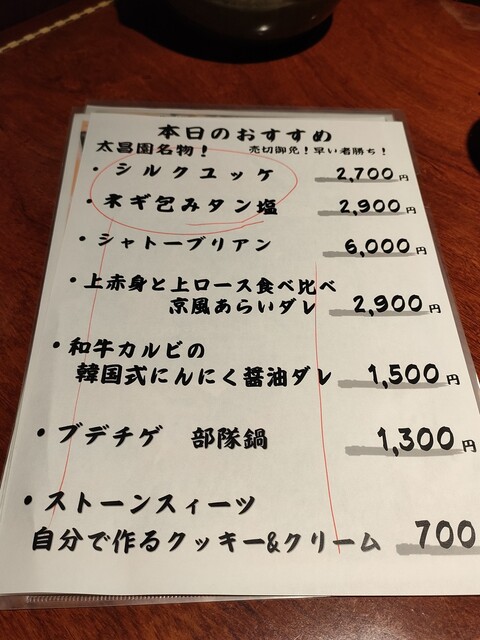 本日のおすすめ
太昌園名物! 売切御免!早い者勝ち!
・シルクユッケ 2,700円
・ネギ包みタン塩 2,900円
・シャトーブリアン 6,000円
・上赤身と上ロース食べ比べ
京風あらいダレ 2,900円
・和牛カルビの
韓国式にんにく醤油ダレ 1,500円
・ブデチゲ 部隊鍋 1,300円
・ストーンスィーツ
自分で作るクッキー&クリーム 700